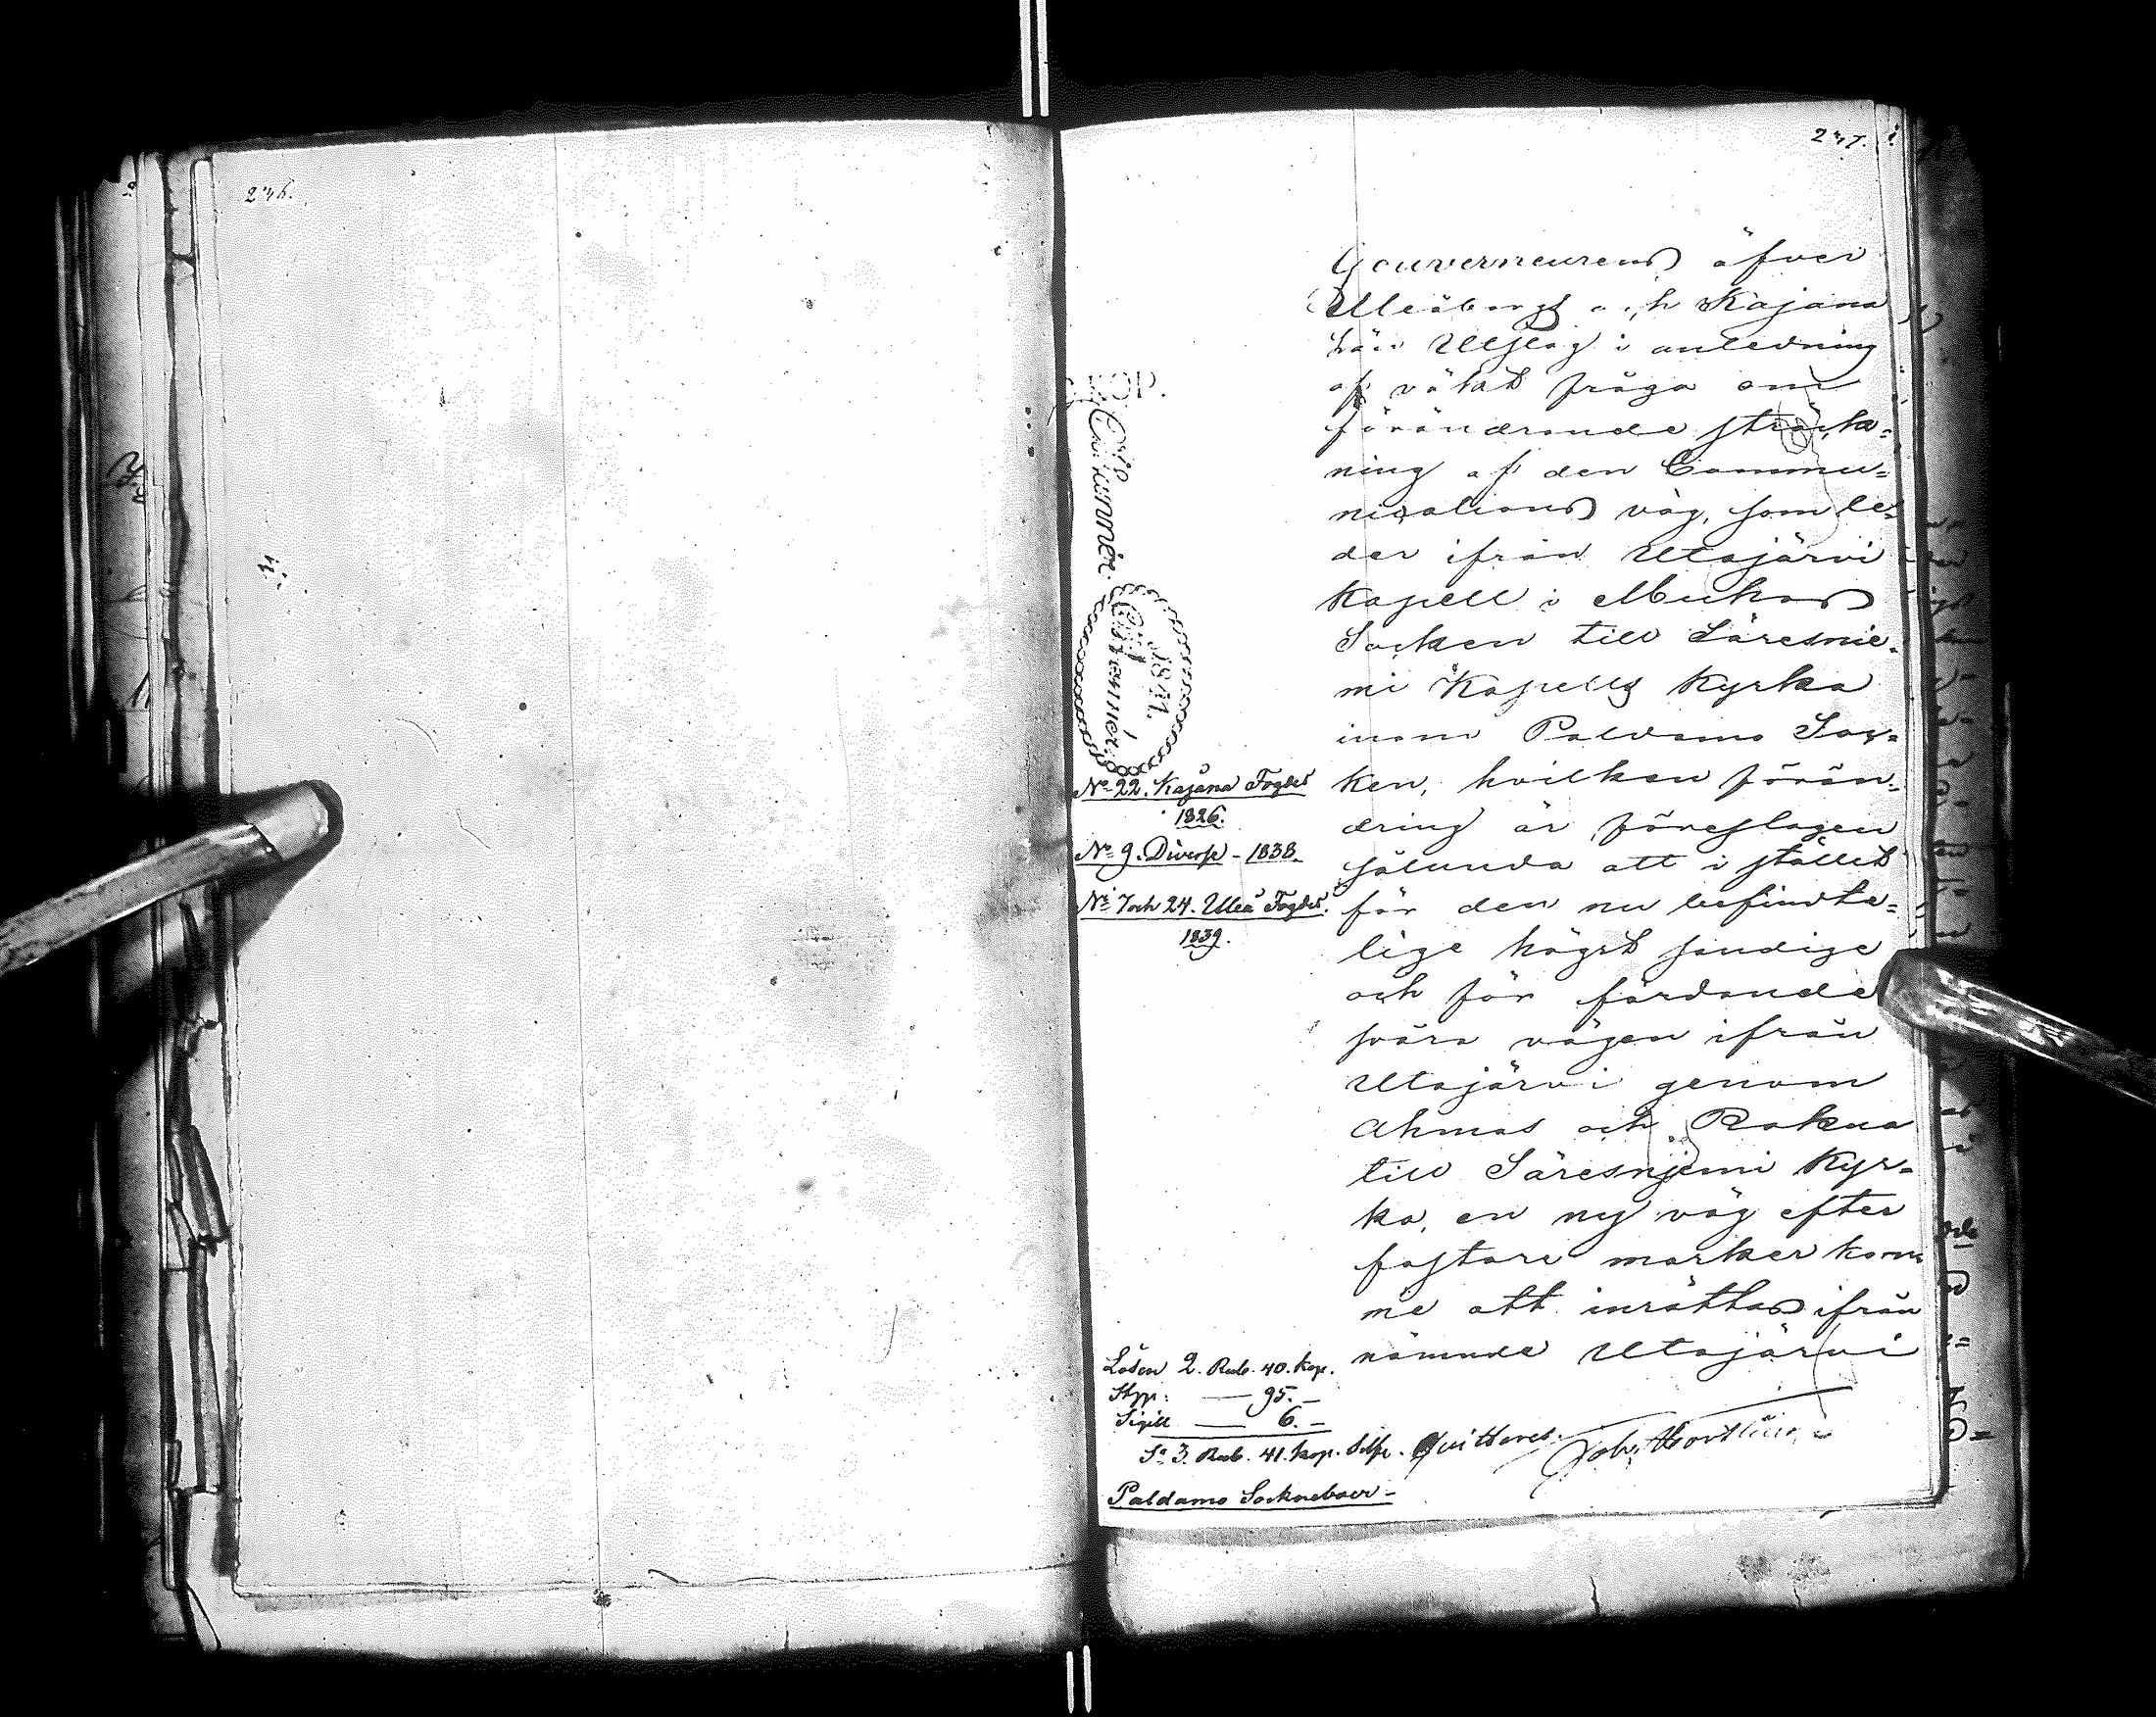 246.
247.
Gouverneurens öfver
Uleåborgs och Kajana
Län Utslag i anledning
af väkt fråga om
förändrande sträck=
ning af den Commu=
nications väg, som le=
der ifrån Utajärvi
Kapell i Muhos
Socken till Säresnie=
mi Kapells Kyrka
inom Paldamo Soc=
ken, hvilken förän=
dring är föreslagen
sålunda att i stället
för den nu befindte=
lige högst sandige
och för färdande
svåra vägen ifrån
Utajärvi genom
Ahmas och Rokua
till Säresnjemi Kyr=
ka, en ny väg efter
fastare marker kom
me att inrättas ifrån
nämnde Utajärvi
KOP.
1841.
No 22. Kajana Fögderi
1826.
No 9. Diverse - 1838.
No 7 och 24. Uleå Fögderi.
1839.
Lösen 2. Rub. 40. Kop.
Stpp: — 95. —
Sigill — 6. —
Sa 3. Rub. 41. kop. Silfr. Quitteras.
Paldamo Sockneboer -